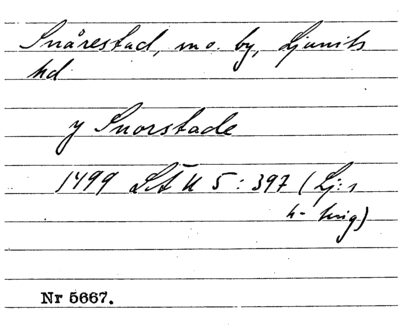 Snårestad, sn o. by, Ljunits
hd
y Snorstade
1499 LSÅ U 5:397 (Lj:s
h- ting)
Nr 5667.